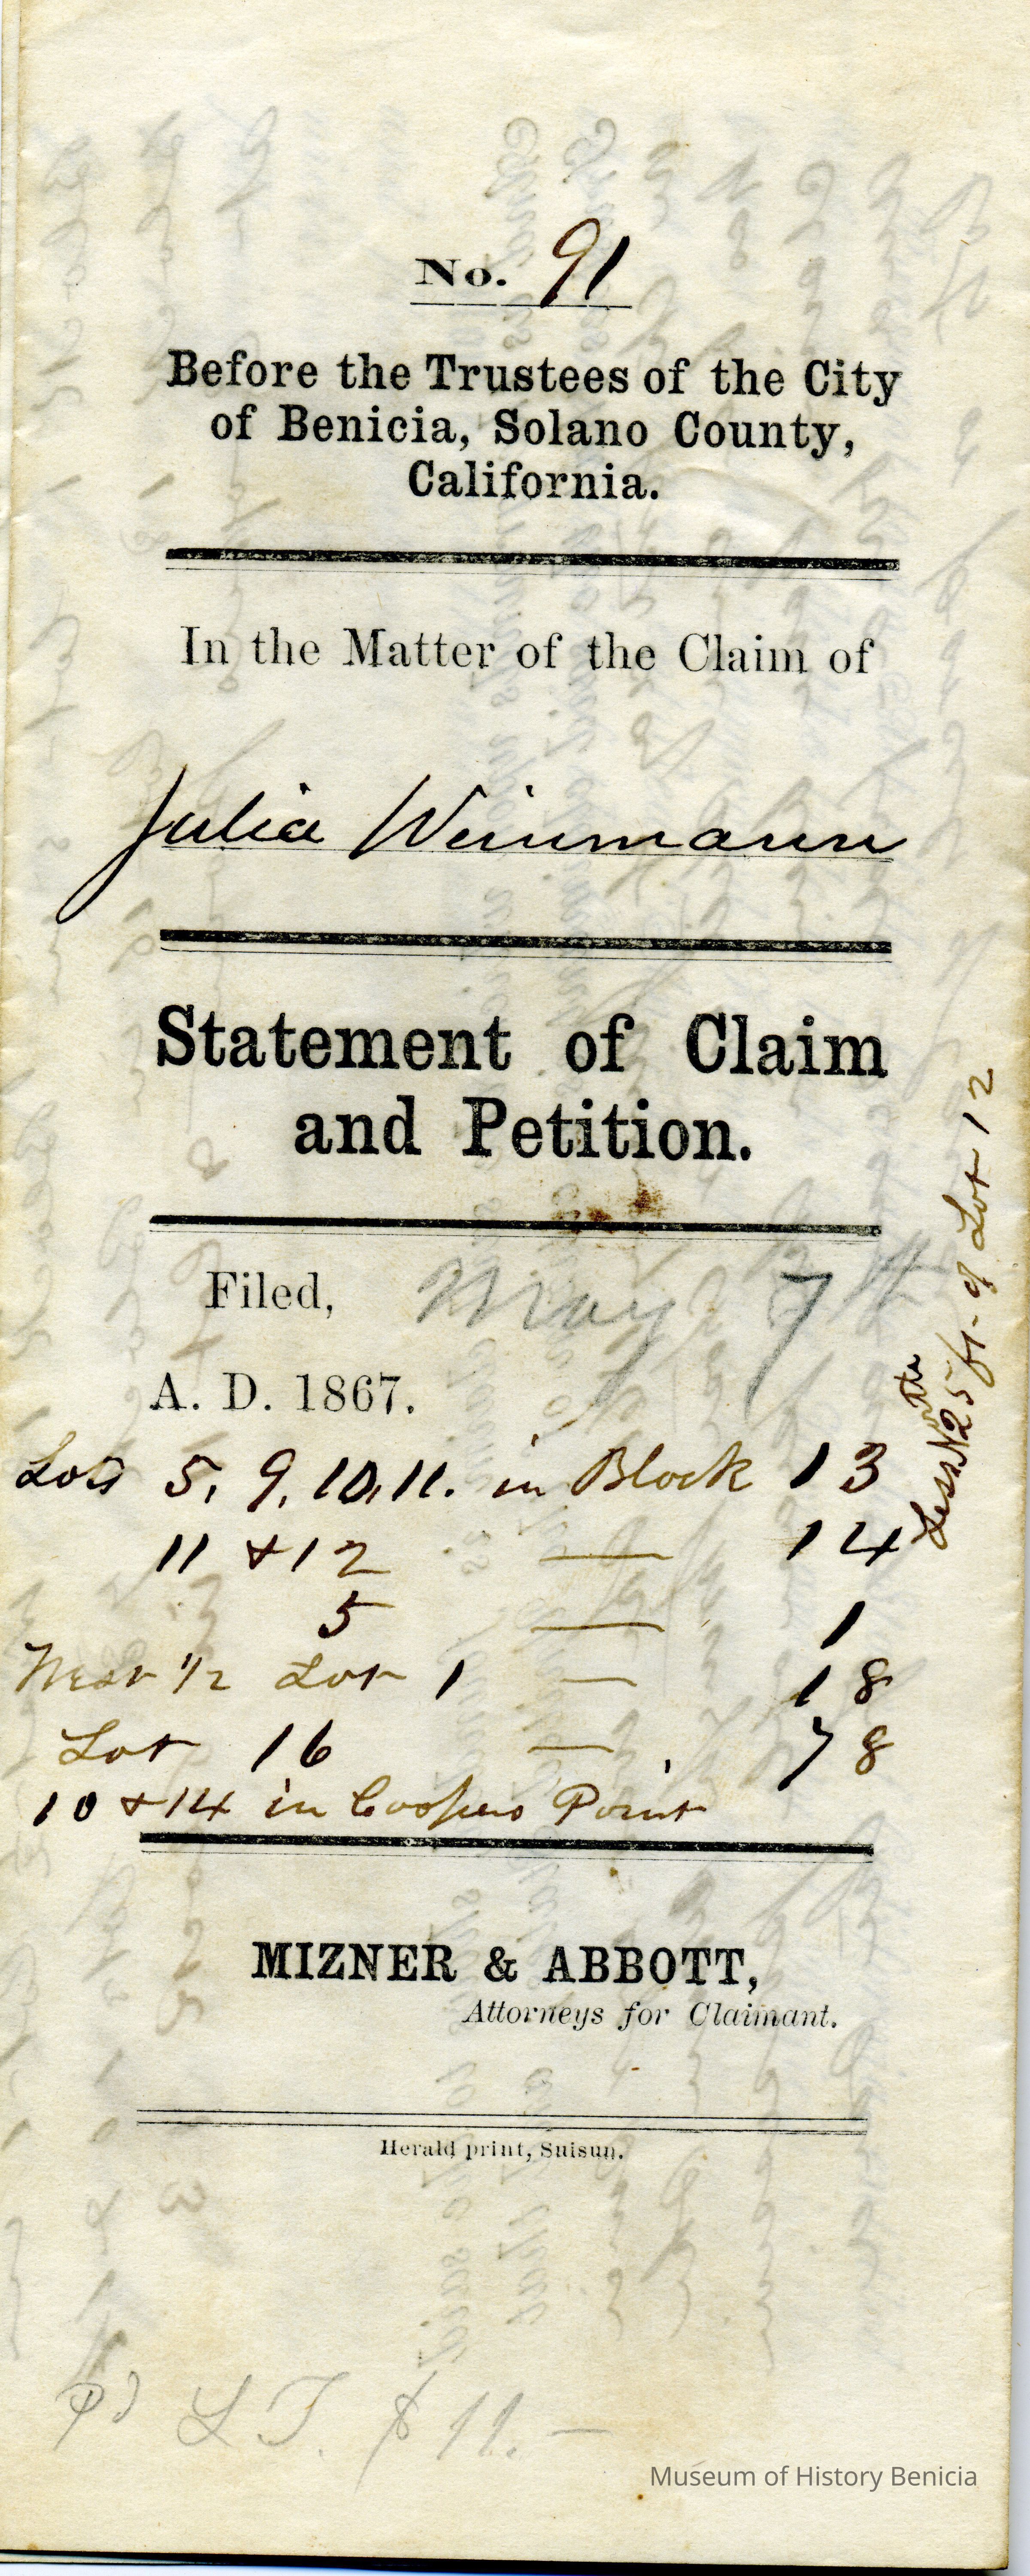 No. 91
Before the Trustees of the City
of Benicia, Solano County,
California.
In the Matter of the Claim of
Julia Weinmann
Statement of Claim
and Petition.
Filed, May 7th
A. D. 1867.
Lots 5, 9, 10, 11. in Block 13
11 + 12 — 14
Less N 25 ft. of Lot 12
5 — 1
West 1/2 Lot 1 — 18
Lot 16 — 78
10 + 14 in Coopers Point
MIZNER & ABBOTT,
Attorneys for Claimant.
Herald print, Suisun.
pd L T. $11.—
Museum of History Benicia